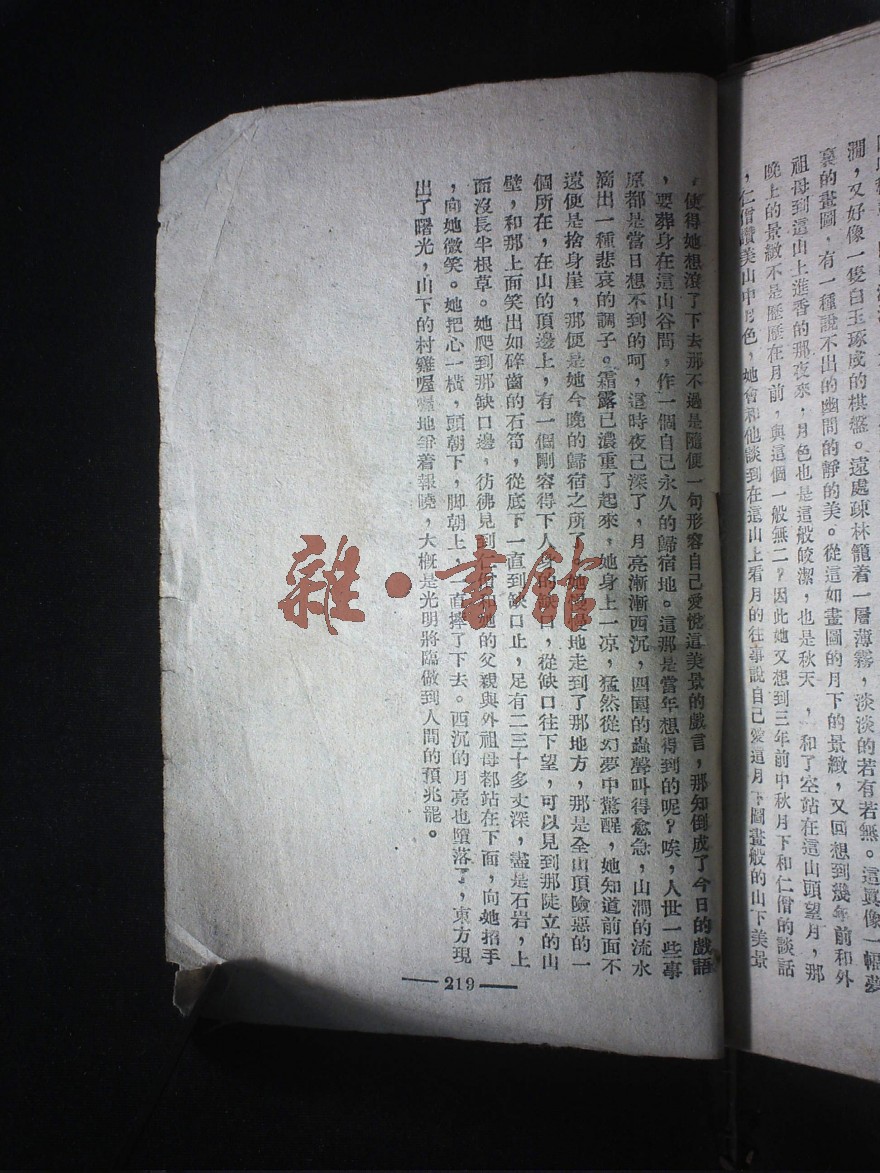 澗,又好像一
白玉琢成的棋盤。遠處疎林籠着一層薄霧,淡淡的若有若無。這眞像一幅夢
裏的畫圖,有一種說不出的幽閒的靜的美。從這如畫圖的月下的景緻,又回想到幾年前和外
祖母到這山上進香的那夜來,月色也是這般皎潔,也是秋天,和了空站在這山頭望月,那
晚上的景緻不是歷歷在目前,與這個一般無二?因此她又想到三年前中秋月下和仁僧的談話
,仁僧讚美山中月色,她會和他談到在這山上看月的往事說自己愛這月下圖畫般的山下美景
,使得她想滾了下去那不過是隨便一句形容自己愛惜這美景的戲言,那知倒成了今日的戲語
,要葬身在這山谷間,作一個自己永久的歸宿地。這那是當年想得到的呢?唉,人世一些事
原都是當日想不到的呵,這時夜已深了,月亮漸漸西沉,四圍的蟲聲叫得愈急,山澗的流水
滴出一種悲哀的調子。霜露已濃重了起來,她身上一凉,猛然從幻夢中驚醒,她知道前面不
遠便是捨身崖,那便是她今晚的歸宿之所了,她慢慢地走到了那地方,那是全山頂險惡的一
個所在,在山的頂邊上,有一個剛容得下人身的缺口,從缺口往下望,可以見到那陡立的山
壁,和那上面笑出如碎齒的石筍,從底下一直到缺口止,足有二三十多丈深,盡是石岩,上
面沒長半根草。她爬到那缺口邊,彷彿見到仁僧和她的父親與外祖母都站在下面,向她招手
,向她微笑。她把心一橫,頭朝下,脚朝上,一直摔了下去。西沉的月亮也墮落了,東方現
出了曙光,山下的村雞喔喔地爭着報曉,大概是光明將臨做到人間的預兆罷。
219
雜·書館